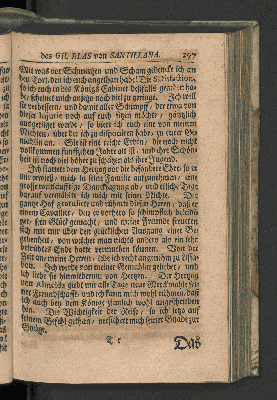 des GIL BLAS von SANTILLANA. 297
Mit was vor Schmertzen und Scham gedencke ich an
den Tort, den ich euch angethan habe! Die Satisfaction,
so ich euch in des Königs Cabinet deßfalls gegeben ha-
be, scheinet mich anjetzo noch viel zu geringe. Ich will
sie verbessern, und damit aller Schimpf, der etwa von
dieser Injurie noch auf euch haften möchte, gäntzlich
ausgetilget werde, so biete ich euch eine von meinen
Niecken, über die ich zu disponiren habe, zu eurer Ge-
mahlin an. Sie ist eine reiche Erbin, die noch nicht
vollkommen funffzehen Jahre alt ist, und ihre Schön-
heit ist noch viel höher zu schätzen als ihre Jugend.
Ich stattete dem Hertzog vor die besondere Ehre, so er
mir erwieß, mich in seine Familie aufzunehmen, eine
grosse Dancksagung ab, und etliche Tage
darauf vermählte ich mich mit seiner Niecke. Der
gantze Hof gratulirte und rühmte diesen Herrn, daß er
einem Cavallier, den er vorhero so schimpflich beleidi-
get, sein Glück gemacht, und meine Freunde freueten
sich mit mir über den glücklichen Ausgang einer Be-
gebenheit, von welcher man nichts anders als ein sehr
betrübtes Ende hatte vermuthen können. Von der
Zeit an, meine Herren, lebe ich recht angenehm zu Lissa-
bon. Ich werde von meiner Gemahlin geliebet, und
ich liebe sie hinwiederum von Hertzen. Der Hertzog
von Almeida giebt mir alle Tage neue Merckmahle sei-
ner Freundschafft, und ich kann mich wohl rühmen, daß
ich auch bey dem Könige ziemlich wohl angeschrieben
bin. Die Wichtigkeit der Reise, so ich jetzo auf
seinen Befehl gethan, versichert mich seiner Gnade zur
Gnüge.
T Das